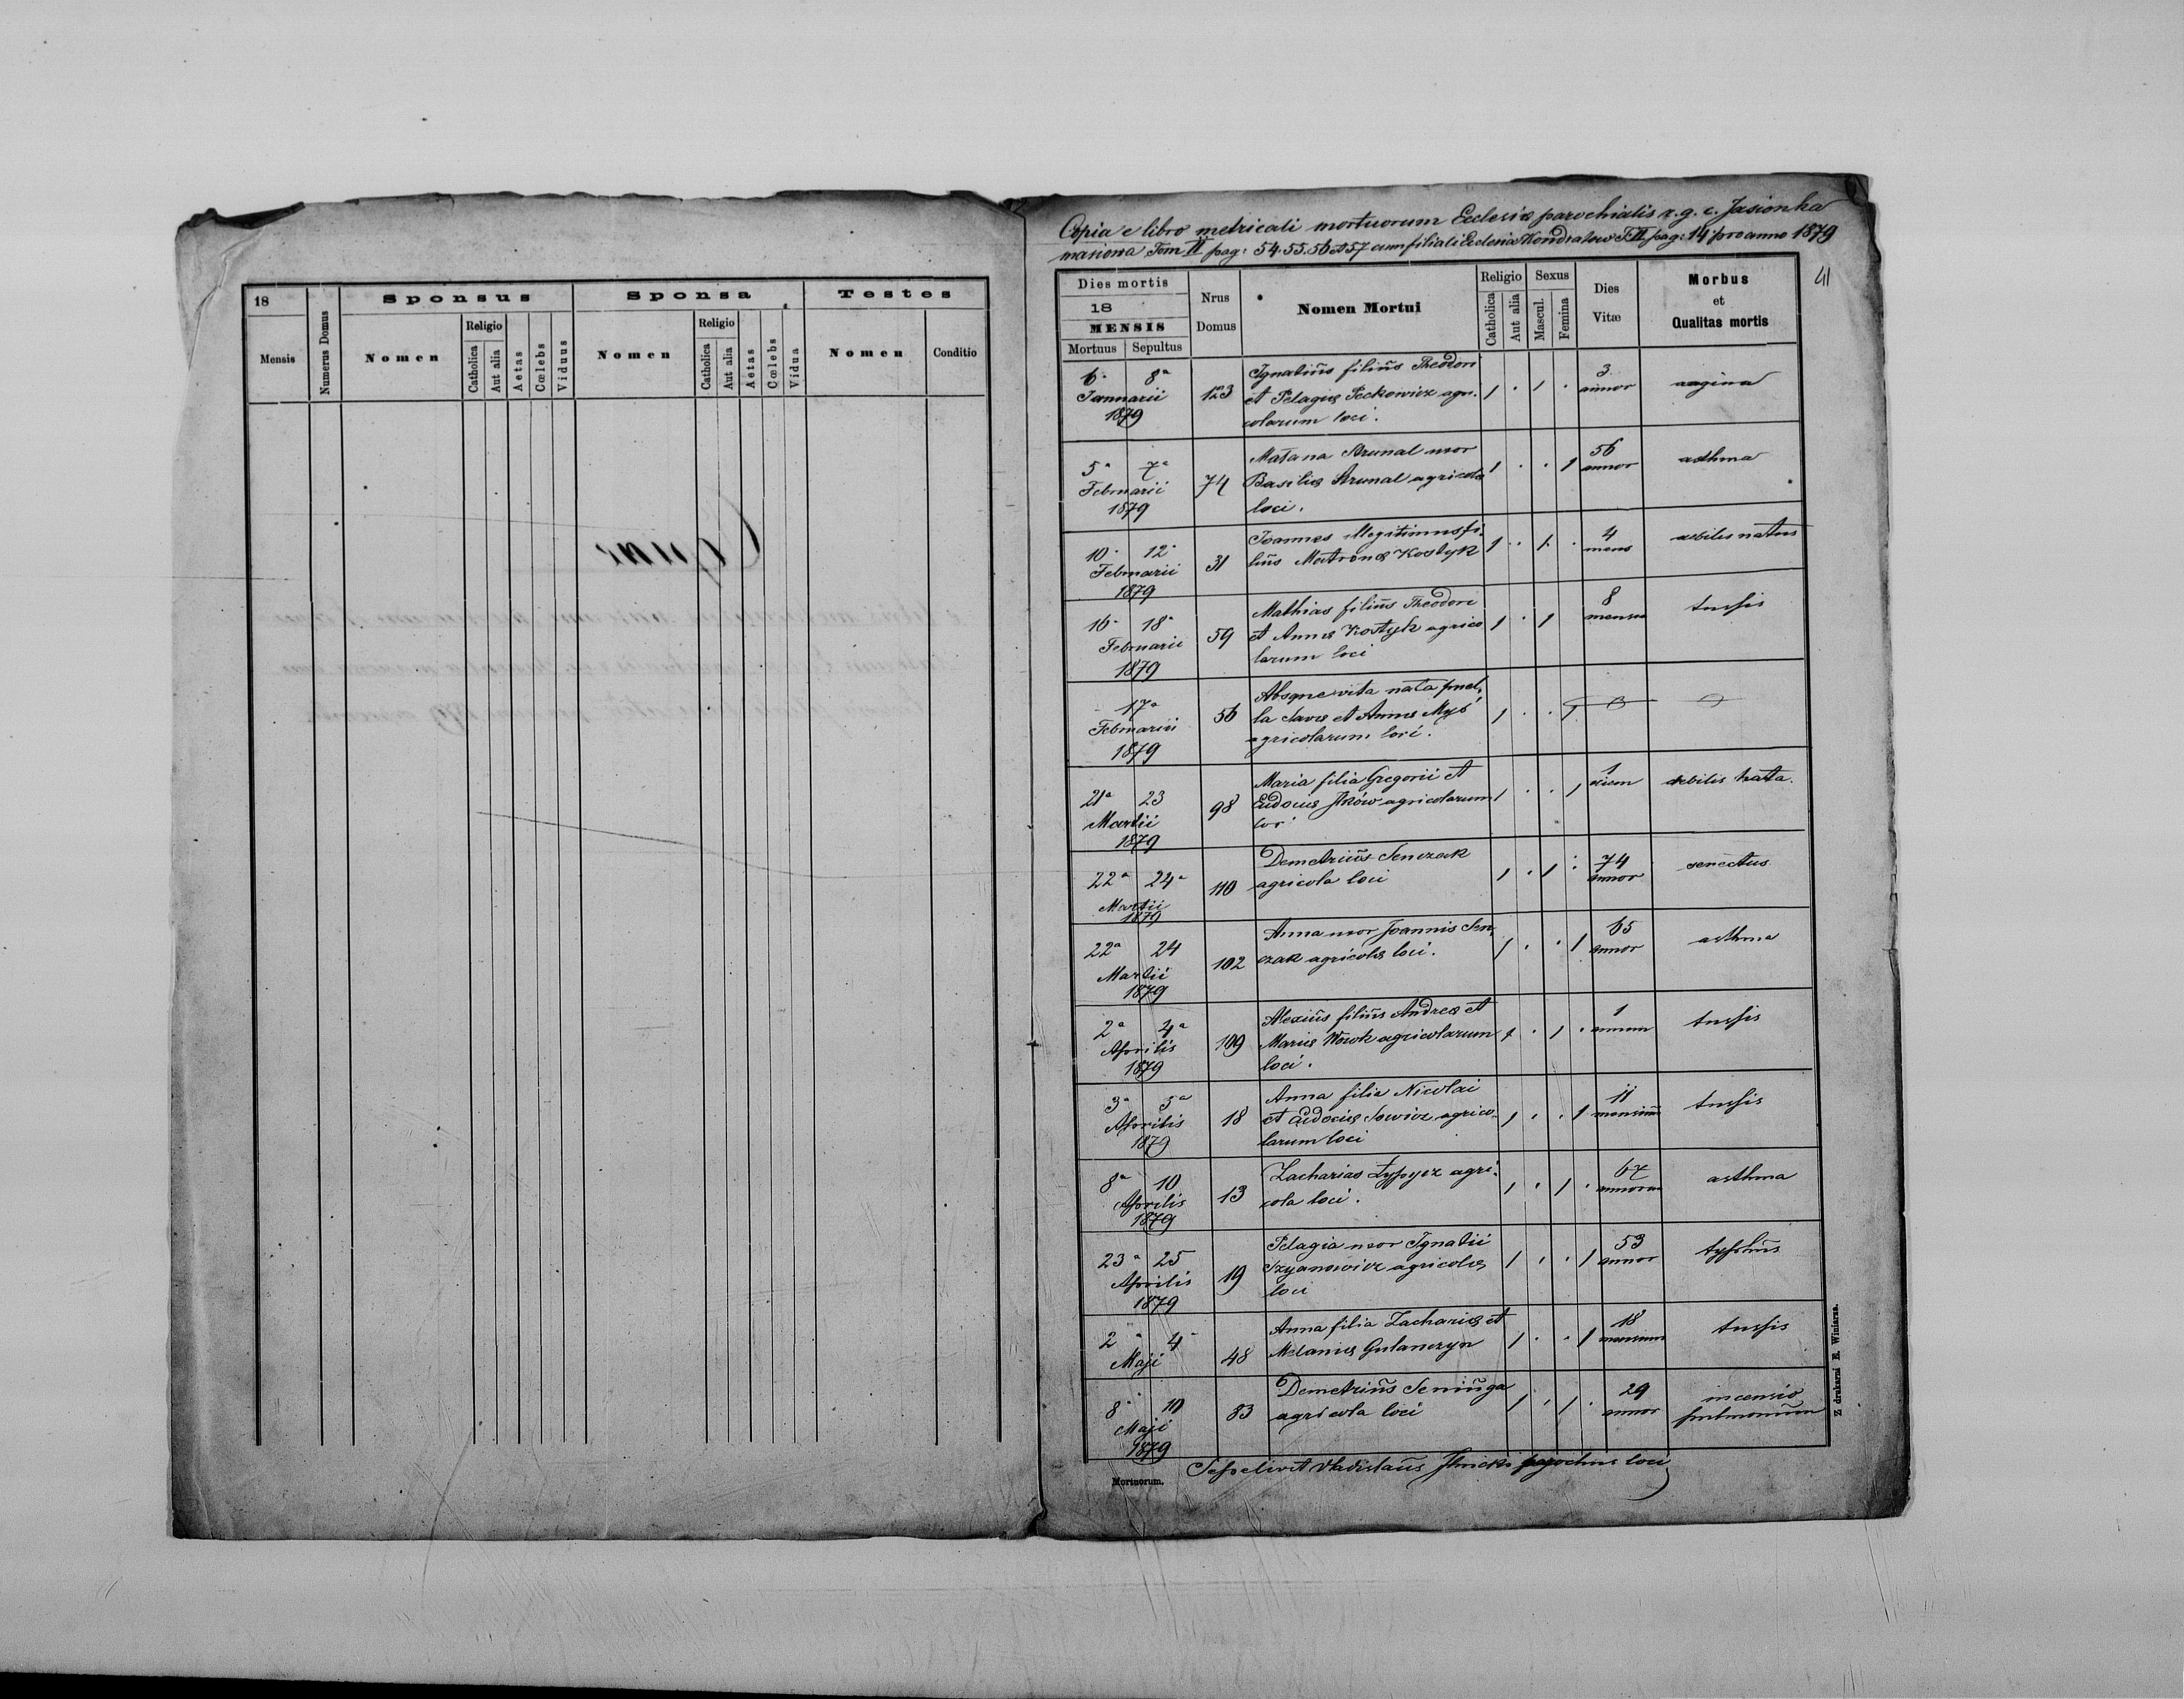 18
Mensis
Numerus Domus
Sponsus
Nomen
Religio
Catholica
Aut alia
Aetas
Cœlebs
Viduus
Sponsa
Nomen
Religio
Catholica
Aut alia
Aetas
Cœlebs
Vidua
Testes
Nomen
Conditio
Copia e libro metricali mortuorum Ecclesiæ parochialis r.g.c. Jasionka
masiowa Tom II pag: 54.55.56 et 57 cum filiali Ecclesia Kondratow T.II pag: 14 pro anno 1879
41
Dies mortis
18
MENSIS
Mortuus Sepultus
Nrus
Domus
Nomen Mortui
Religio
Catholica
Aut alia
Sexus
Mascul.
Femina
Dies
Vitæ
Morbus
et
Qualitas mortis
6a 8a
Januarii
1879
123
Ignatius filius Theodori
et Pelagiæ Peckowicz agri-
colarum loci.
1 . 1 .
3
annor
angina
5a 7a
Februarii
1879
74
Matrona Strunal uxor
Basilii Strunal agricolæ
loci.
1 . . 1
56
annor
asthma
10a 12a
Februarii
1879
31
Joannes illegitimus fi-
lius Matronæ Kostyk
1 . 1 .
4
mens
debilis natus
16a 18a
Februarii
1879
59
Mathias filius Theodori
et Annæ Kostyk agrico
larum loci
1 . 1
8
menses
tussis
17a
Februarii
1879
56
Absque vita nata puel-
la Savæ et Annæ Myś
agricolarum loci.
1 . . 1
21a 23
Martii
1879
98
Maria filia Gregorii et
Eudociæ Ilków agricolarum
loci
1 . . 1
1
diem
debilis nata.
22a 24a
Martii
1879
110
Demetrius Senczak
agricola loci
1 . 1 .
74
annor
senectus
22a 24
Martii
1879
102
Anna uxor Joannis Sen-
czak agricolæ loci.
1 . . 1
65
annor
asthma
2a 4a
Aprilis
1879
109
Alexius filius Andreæ et
Mariæ Wowk agricolarum
loci.
1 . 1 .
1
annum
tussis
3a 5a
Aprilis
1879
18
Anna filia Nicolai
et Eudociæ Sawicz agrico-
larum loci
1 . . 1
11
mensium
tussis
8a 10
Aprilis
1879
13
Zacharias Łypycz agri-
cola loci.
1 . 1 .
67
annorum
asthma
23a 25
Aprilis
1879
19
Pelagia uxor Ignatii
Szyanowicz agricolæ
loci
1 . . 1
53
annor
typhus
2a 4a
Maji
48
Anna filia Zachariæ et
Melaniæ Gulanczyn
1 . . 1
18
mensium
tussis
8a 10
Maji
1879
83
Demetrius Seniuga
agricola loci
1 . 1 .
29
annor
incensio
pulmonum
Mortuorum.
Sepelivit Vladislaus Ilnicki parochus loci
Z drukarni E. Winiarza.